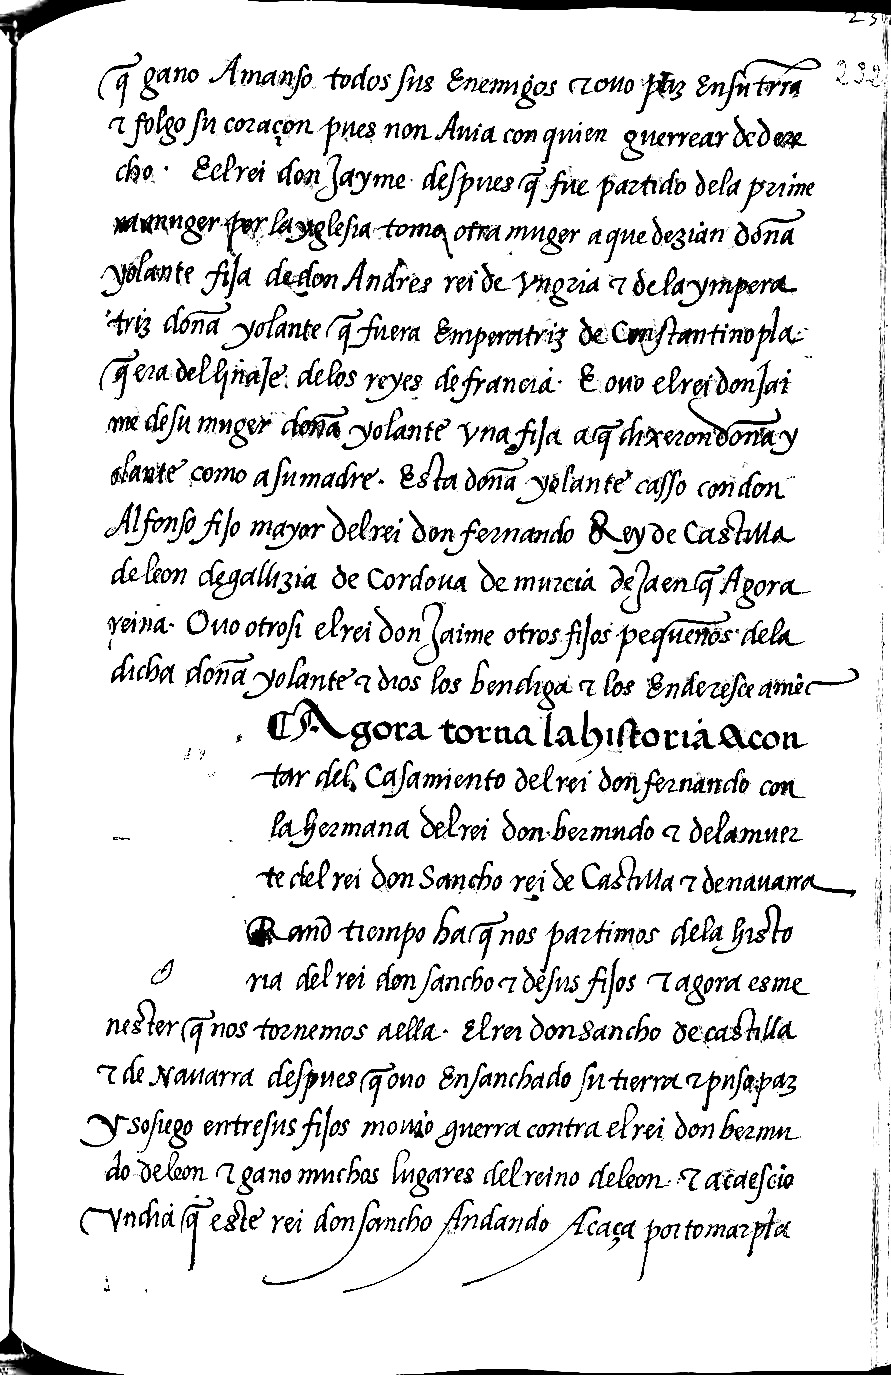 q̃ gano Amanso todos sus Enemigos ⁊ ouo paz En su trr̃a
⁊ folgo su coraçon pues non Auia con quien guerrear de dere
cho · E el rei don Jayme despues q̃ fue partido dela prime
ra muger por la yglesia tomo otra muger a que dezian doña
yolante fija de don Andres rei de Vngria ⁊ de la ympera
triz doña yolante q̃ fuera Emperatriz de Constantinopla
q̃ era del linaje de los reyes de francia · E ouo el rei don Jai
me de su muger doña yolante Vna fija a q̃ dixeron doña y
olante como a su madre · Esta doña yolante casso con don
Alfonso fijo mayor del rei don fernando Rey de Castilla
de leon de gallizia de Cordoua de murcia de Jaen q̃ Agora
reina · Ouo otrosi el rei don Jaime otros fijos pequeños de la
dicha doña yolante ⁊ dios los bendiga ⁊ los Enderesce amẽ
¶ Agora torna la historia a con
tar del Casamiento del rei don fernando con
la hermana del rei don bermudo ⁊ de la muer
te del rei don Sancho rei de Castilla ⁊ de nauarra
Rand tiempo ha q̃ nos partimos de la histo
ria del rei don sancho ⁊ de sus fijos ⁊ agora es me
nester q̃ nos tornemos a ella · El rei don Sancho de castilla
⁊ de Nauarra despues q̃ ouo Ensanchado su tierra ⁊ puso paz
y sosiego entre sus fijos mouio guerra contra el rei don bermu
do de leon ⁊ gano muchos lugares del reino de leon ⁊ acaescio
Vn dia q̃ este rei don sancho Andando Acaça por tomar pla